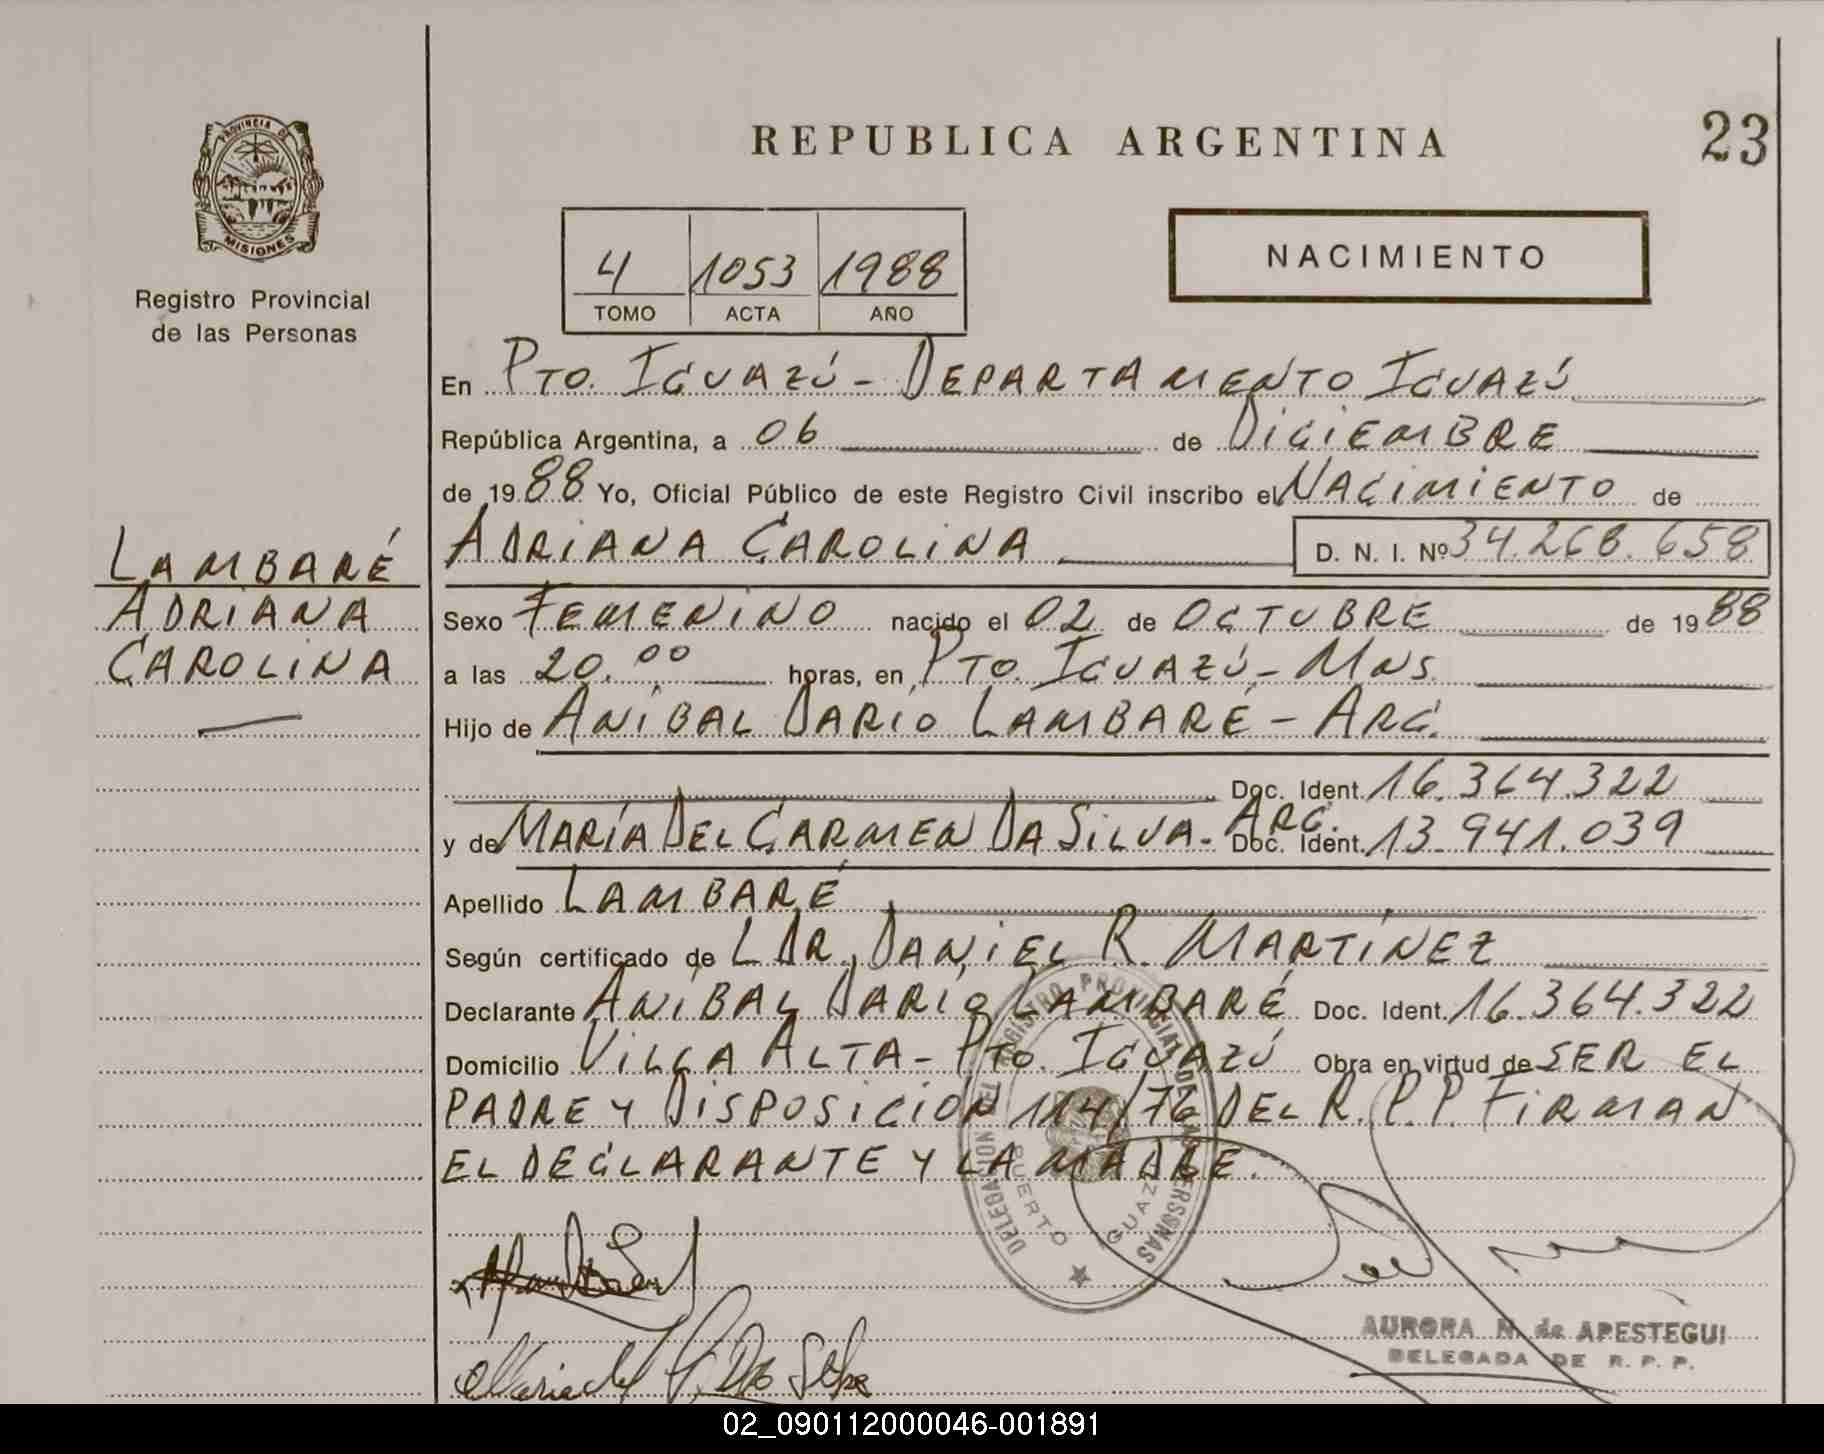 PROVINCIA DE
MISIONES
Registro Provincial
de las Personas
LAMBARÉ
ADRIANA
CAROLINA
REPUBLICA ARGENTINA
23
4 1053 1988
TOMO ACTA AÑO
NACIMIENTO
En PTO. IGUAZÚ - DEPARTAMENTO IGUAZÚ
República Argentina, a 06 de DICIEMBRE
de 1988 Yo, Oficial Público de este Registro Civil inscribo el NACIMIENTO de
ADRIANA CAROLINA D. N. I. Nº 34.268.658
Sexo FEMENINO nacido el 02 de OCTUBRE de 1988
a las 20.00 horas, en PTO. IGUAZÚ - MNS.
Hijo de ANÍBAL DARIO LAMBARÉ - ARG.
Doc. Ident. 16.364.322
y de MARÍA DEL CARMEN DA SILVA - ARG. Doc. Ident. 13.941.039
Apellido LAMBARÉ
Según certificado de L DR. DANIEL R. MARTÍNEZ
Declarante ANÍBAL DARÍO LAMBARÉ Doc. Ident. 16.364.322
Domicilio VILLA ALTA - PTO. IGUAZÚ Obra en virtud de SER EL
PADRE Y DISPOSICIÓN 114/76 DEL R.P.P. FIRMAN
EL DECLARANTE Y LA MADRE.
DELEGACION DEL REGISTRO PROVINCIAL DE LAS PERSONAS
PUERTO IGUAZU
Maria del C. Da Silva
AURORA N. de APESTEGUI
DELEGADA DE R. P. P.
02_090112000046-001891